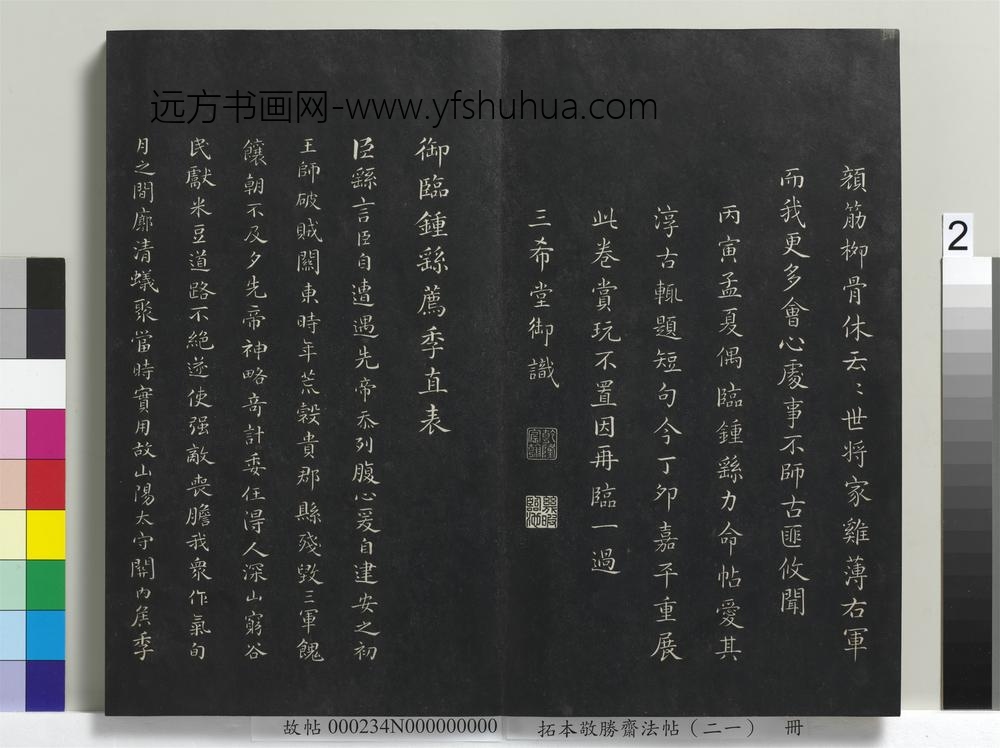 远方书画网-www.yfshuhua.com
顏筋柳骨休云〻世將家雞薄右軍
而我更多會心處事不師古匪攸聞
丙寅孟夏偶臨鍾繇力命帖愛其
淳古輒題短句今丁卯嘉平重展
此卷賞玩不置因再臨一過
三希堂御識
御臨鍾繇薦季直表
臣繇言臣自遭遇先帝忝列腹心爰自建安之初
王師破賊關東時年荒穀貴郡縣殘毀三軍餽
饟朝不及夕先帝神略奇計委任得人深山窮谷
民獻米豆道路不絕遂使强敵喪膽我衆作氣旬
月之間廓清蟻聚當時實用故山陽太守關內侯季
2
故帖 000234N000000000
拓本敬勝齋法帖（二一） 冊